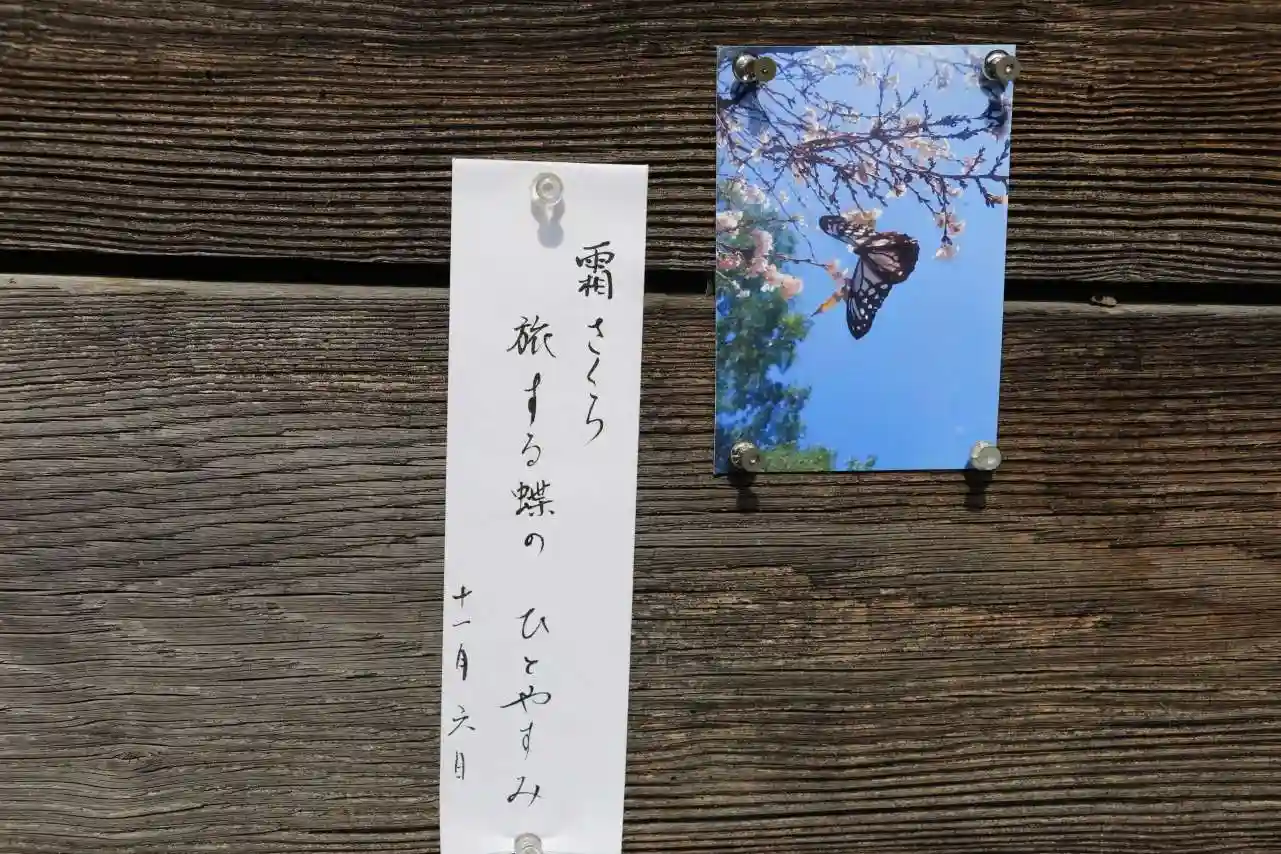 霜さくら
旅する蝶の ひとやすみ
十一月六日